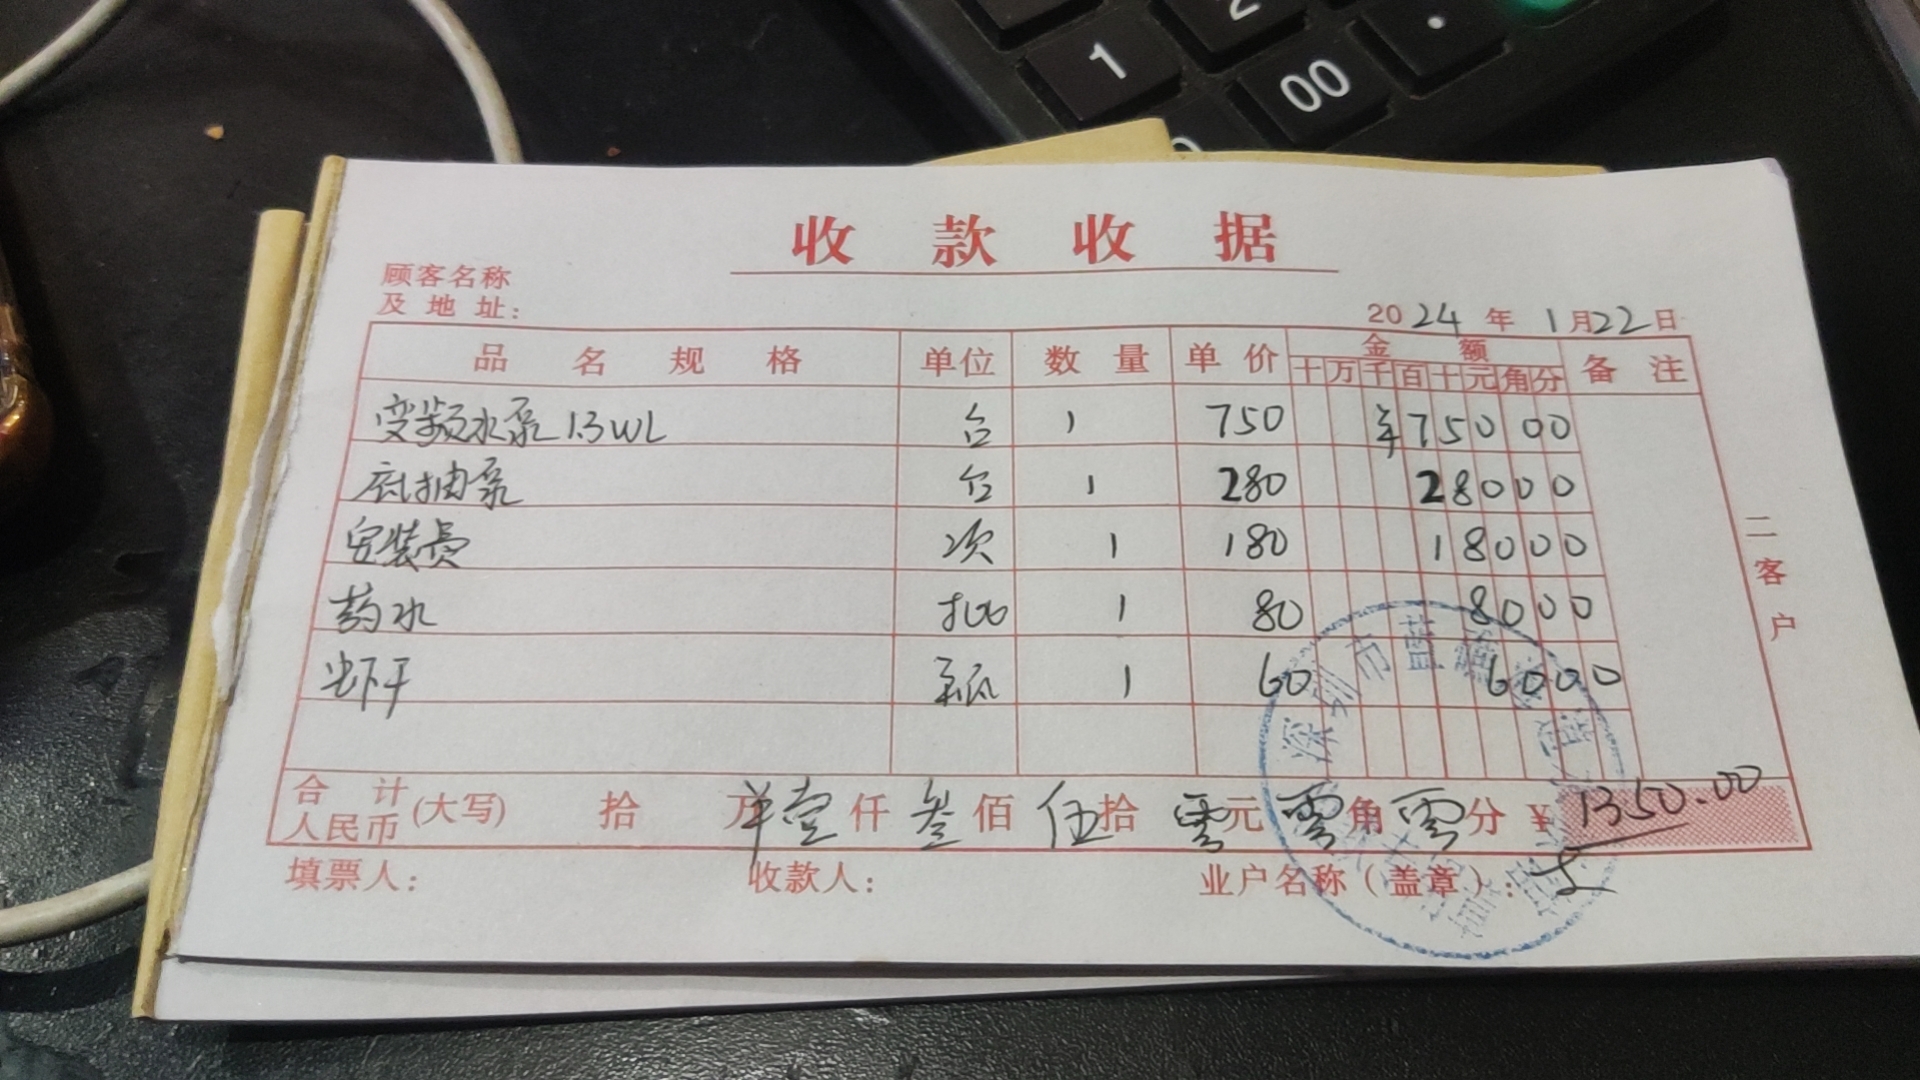 1
2
00
收款收据
顾客名称
及地址:
2024年1月22日
品名规格 单位 数量 单价 金额 备注
十万千百十元角分
变频水泵13WL 台 1 750 ¥75000
底抽泵 台 1 280 28000
安装费 次 1 180 18000
药水 批 1 80 8000
虾干 瓶 1 60 6000
二客户
合计人民币(大写) 拾 万 壹仟 叁佰 伍拾 零元 零角 零分 ¥1350.00
填票人: 收款人: 业户名称(盖章):
深圳市蓝